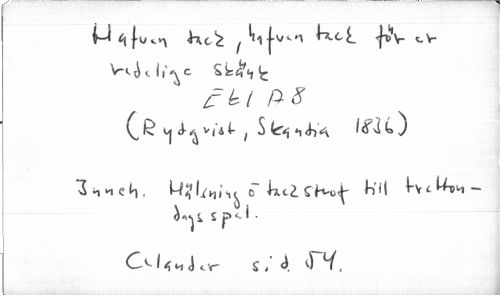 Hafven tack, hafven tack för er
redelige skänk
EkI A8
(Rydqvist, Skandia 1836)
Inneh. Hälsning o tackstrof till tretton-
dagsspel.
Celander sid. 54.